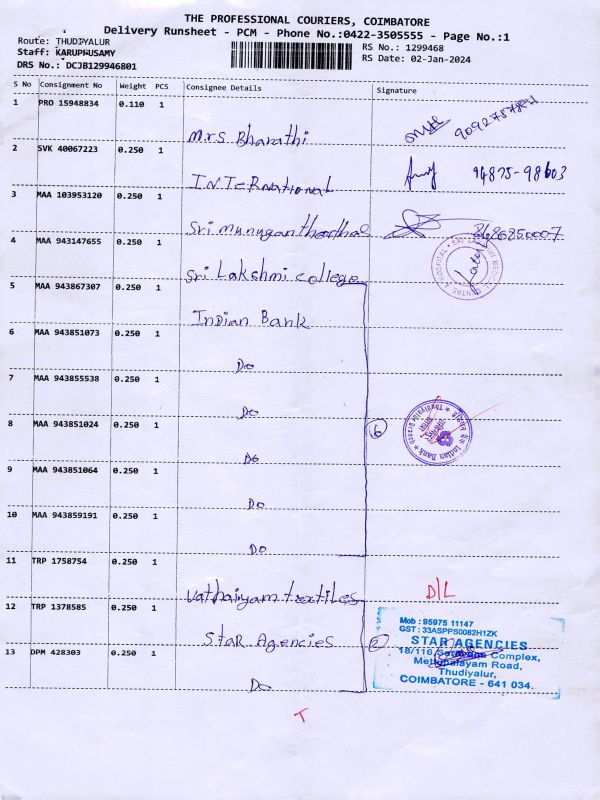 THE PROFESSIONAL COURIERS, COIMBATORE
Delivery Runsheet - PCM - Phone No.:0422-3505555 - Page No.:1
Route: THUDIYALUR
Staff: KARUPHUSAMY
DRS No.: DCJB129946801
RS No.: 1299468
RS Date: 02-Jan-2024
S No Consignment No Weight PCS Consignee Details Signature
1 PRO 15948834 0.110 1 Mrs Bharathi
2 SVK 40067223 0.250 1 INTERnational 94875-98603
3 MAA 103953120 0.250 1 Sri Murugan 8626250007
4 MAA 943147655 0.250 1 Sri Lakshmi college
5 MAA 943867307 0.250 1 Indian Bank
6 MAA 943851073 0.250 1 Do
7 MAA 943855538 0.250 1 Do
8 MAA 943851024 0.250 1 Do 6
9 MAA 943851064 0.250 1 Do
10 MAA 943859191 0.250 1 Do
11 TRP 1758754 0.250 1 Vathaiyam textiles D/L
12 TRP 1378585 0.250 1 StaR Agencies 2
13 DPM 428303 0.250 1 Do
Indian Bank * Thudiyalur Branch
Mob : 95975 11147
GST : 33ASPPS0082H1ZK
STAR AGENCIES
18/116 Complex,
Mettupalayam Road,
Thudiyalur,
COIMBATORE - 641 034.
T